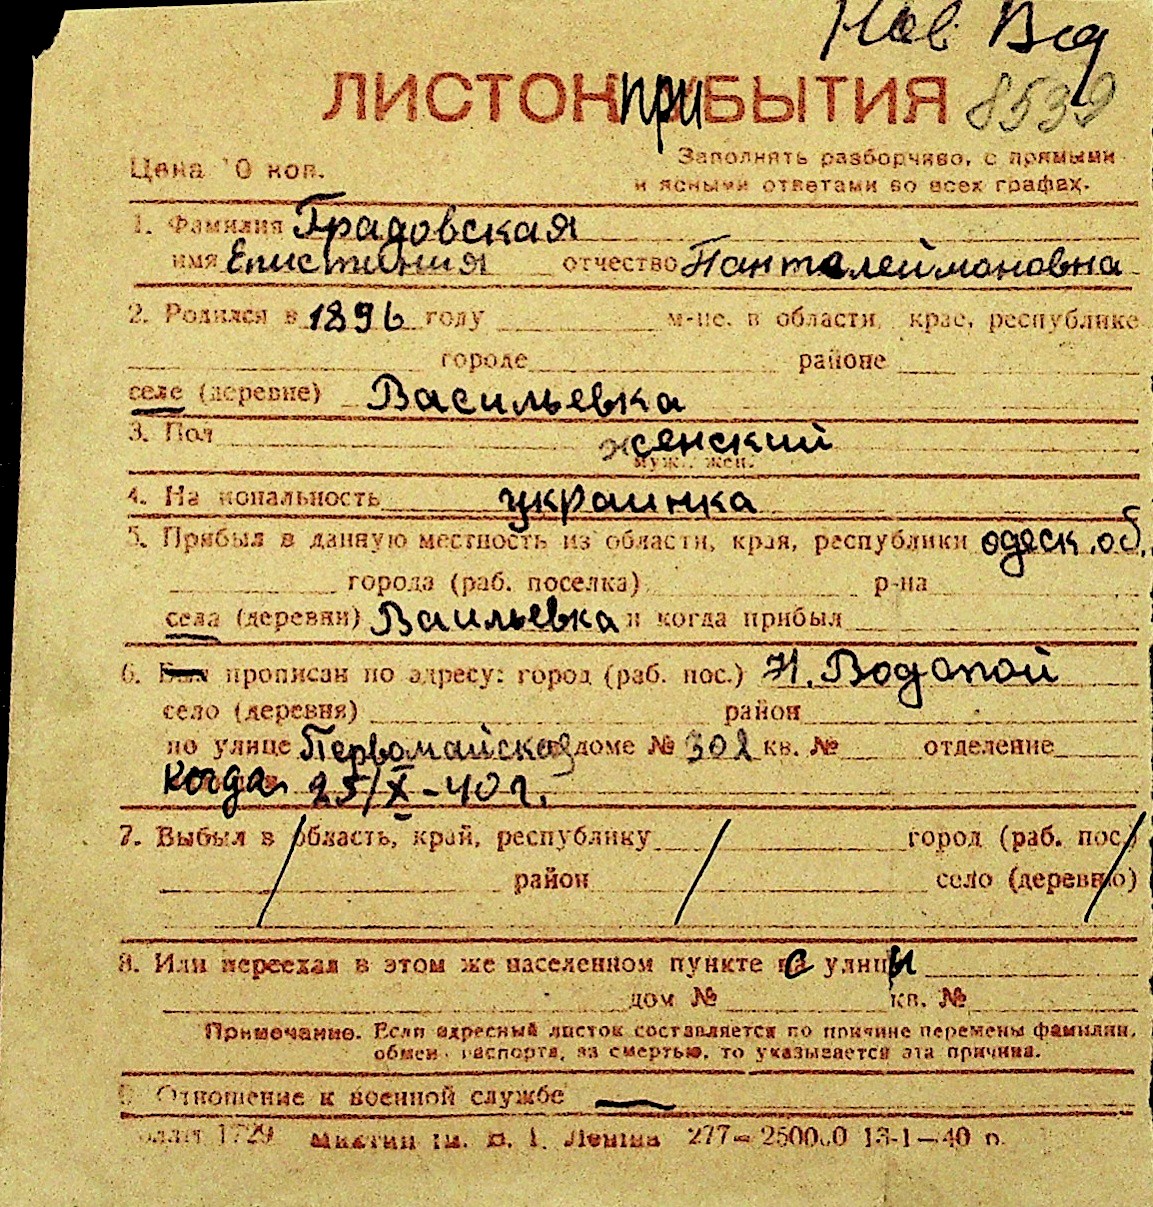 Нов Вод
ЛИСТОК ПРИБЫТИЯ 8539
Цена 10 коп. Заполнять разборчиво, с прямыми
и ясными ответами во всех графах.
1. Фамилия Градовская
имя Епистиния отчество Панталеймоновна
2. Родился в 1896 году м-це. в области, крае, республике
городе районе
селе (деревне) Васильевка
3. Пол женский
муж. жен.
4. Национальность украинка
5. Прибыл в данную местность из области, края, республики одеск. об.
города (раб. поселка) р-на
села (деревни) Васильевка и когда прибыл
6. Был прописан по адресу: город (раб. пос.) Н. Водопой
село (деревня) район
по улице Первомайская доме № 302 кв. № отделение
Когда 25/X-40 г.
7. Выбыл в область, край, республику город (раб. пос.)
район село (деревню)
8. Или переехал в этом же населенном пункте с улицы
дом № кв. №
Примечание. Если адресный листок составляется по причине перемены фамилии,
обмен паспорта, за смертью, то указывается эта причина.
9. Отношение к военной службе —
1729 им. В. І. Леніна 277—250000 13-1—40 р.